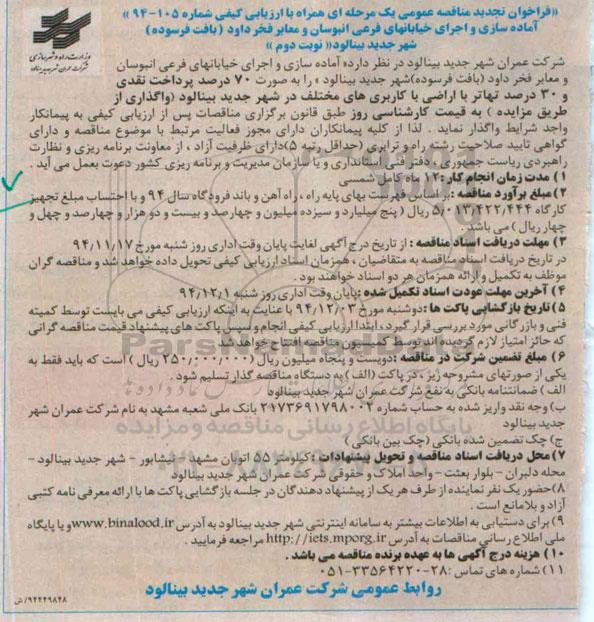 «فراخوان تجدید مناقصه عمومی یک مرحله ای همراه با ارزیابی کیفی شماره ۱۰۵-۹۴»
آماده سازی و اجرای خیابانهای فرعی انبوسان و معابر فخر داود (بافت فرسوده)
شهر جدید بینالود« نوبت دوم »
وزارت راه و شهرسازی
شرکت عمران شهر جدید بینالود
شرکت عمران شهر جدید بینالود در نظر دارد« آماده سازی و اجرای خیابانهای فرعی انبوسان
و معابر فخر داود (بافت فرسوده)شهر جدید بینالود » را به صورت ۷۰ درصد پرداخت نقدی
و ۳۰ درصد تهاتر با اراضی با کاربری های مختلف در شهر جدید بینالود (واگذاری از
طریق مزایده ) به قیمت کارشناسی روز طبق قانون برگزاری مناقصات پس از ارزیابی کیفی به پیمانکار
واجد شرایط واگذار نماید . لذا از کلیه پیمانکاران دارای مجوز فعالیت مرتبط با موضوع مناقصه و دارای
گواهی تایید صلاحیت رشته راه و ترابری (حداقل رتبه ۵)دارای ظرفیت آزاد ، از معاونت برنامه ریزی و نظارت
راهبردی ریاست جمهوری ، دفتر فنی استانداری و یا سازمان مدیریت و برنامه ریزی کشور دعوت بعمل می آید .
۱) مدت زمان انجام کار :۱۲ ماه کامل شمسی
۲)مبلغ برآورد مناقصه :بر اساس فهرست بهای پایه راه ، راه آهن و باند فرودگاه سال ۹۴ و با احتساب مبلغ تجهیز
کارگاه ۵,۰۱۳,۴۲۲,۴۴۴ ریال ( پنج میلیارد و سیزده میلیون و چهارصد و بیست و دو هزار و چهارصد و چهل و
چهار ریال ) می باشد .
۳) مهلت دریافت اسناد مناقصه : از تاریخ درج آگهی لغایت پایان وقت اداری روز شنبه مورخ ۹۴,۱۱,۱۷
در تاریخ دریافت اسناد مناقصه به متقاضیان ، همزمان اسناد ارزیابی کیفی تحویل داده خواهد شد و مناقصه گران
موظف به تکمیل و ارائه همزمان هر دو اسناد خواهند بود .
۴) آخرین مهلت عودت اسناد تکمیل شده :پایان وقت اداری روز شنبه ۹۴,۱۲,۱
۵)تاریخ بازگشایی پاکت ها :دوشنبه مورخ ۹۴,۱۲,۰۳ با عنایت به اینکه ارزیابی کیفی می بایست توسط کمیته
فنی و بازرگانی مورد بررسی قرار گیرد ، ابتدا ارزیابی کیفی انجام و سپس پاکت های پیشنهاد قیمت مناقصه گرانی
که حائز امتیاز لازم گردیده اند توسط کمیسیون مناقصه افتتاح خواهد شد .
۶) مبلغ تضمین شرکت در مناقصه :دویست و پنجاه میلیون ریال (۲۵۰,۰۰۰,۰۰۰ ریال ) است که باید فقط به
یکی از صورتهای مشروحه زیر ،در پاکت (الف ) به دستگاه مناقصه گذار تسلیم شود .
الف ) ضمانتنامه بانکی به نفع شرکت عمران شهر جدید بینالود
ب) وجه نقد واریز شده به حساب شماره ۲۱۷۳۶۹۱۷۹۸۰۰۲ بانک ملی شعبه مشهد به نام شرکت عمران شهر
جدید بینالود
ج) چک تضمین شده بانکی (چک بین بانکی )
۷)محل دریافت اسناد مناقصه و تحویل پیشنهادات :کیلومتر ۵۵ اتوبان مشهد - نیشابور - شهر جدید بینالود -
محله دلبران - بلوار بعثت - واحد املاک و حقوقی شرکت عمران شهر جدید بینالود
۸)حضور یک نفر نماینده از طرف هر یک از پیشنهاد دهندگان در جلسه بازگشایی پاکت ها با ارائه معرفی نامه کتبی
آزاد و بلامانع است .
۹) برای دستیابی به اطلاعات بیشتر به سامانه اینترنتی شهر جدید بینالود به آدرس www.binalood.ir و یا پایگاه
ملی اطلاع رسانی مناقصات به آدرس http://iets.mporg.ir مراجعه فرمایید .
۱۰) هزینه درج آگهی ها به عهده برنده مناقصه می باشد .
۱۱) شماره های تماس : ۲۸-۳۳۵۶۴۲۲۰-۰۵۱
روابط عمومی شرکت عمران شهر جدید بینالود
۹۴۲۴۹۸۴۸/ ش